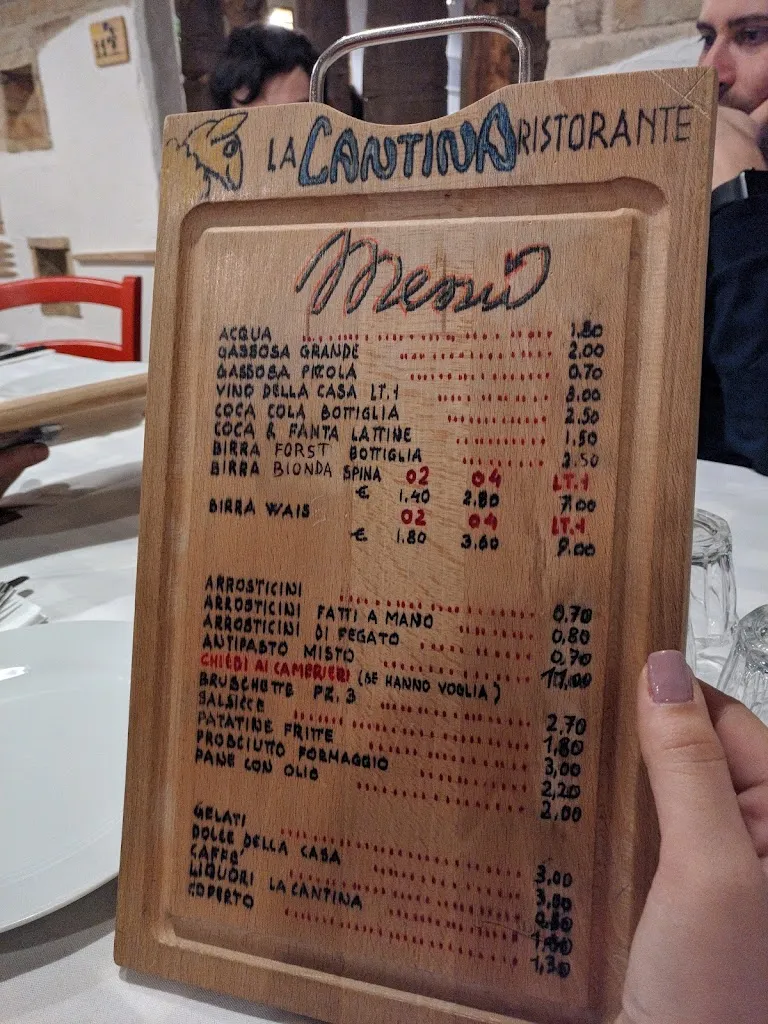 LA CANTINA RISTORANTE
Menù
ACQUA 1.80
GASSOSA GRANDE 2.00
GASSOSA PICCOLA 0.70
VINO DELLA CASA LT.1 8.00
COCA COLA BOTTIGLIA 2.50
COCA & FANTA LATTINE 1.50
BIRRA FORST BOTTIGLIA 2.50
BIRRA BIONDA SPINA 02 04 LT.1
€ 1.40 2.80 7.00
BIRRA WAIS 02 04 LT.1
€ 1.80 3.60 9.00
ARROSTICINI 0,70
ARROSTICINI FATTI A MANO 0,80
ARROSTICINI DI FEGATO 0,70
ANTIPASTO MISTO 11,00
CHIEDI AI CAMERIERI (SE HANNO VOGLIA)
BRUSCHETTE PZ. 3 2,70
SALSICCE 1,80
PATATINE FRITTE 3,00
PROSCIUTTO FORMAGGIO 2,20
PANE CON OLIO 2,00
GELATI 3,00
DOLCE DELLA CASA 3,00
CAFFE'
LIQUORI LA CANTINA
COPERTO 1,30